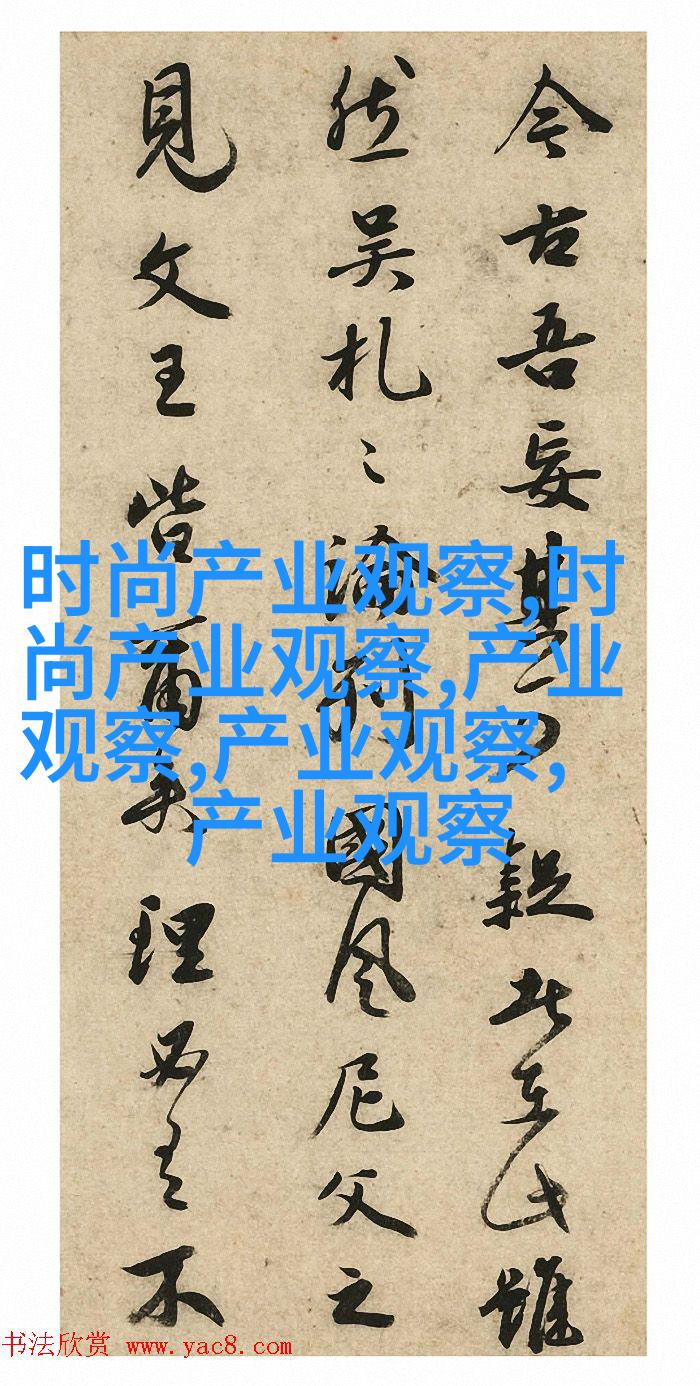 今古吾妄其
雖
然吴札〻
國風尼父之
見文王皆
理必有不
时尚产业观察,时
尚产业观察,产业
观察,产业观察,
产业观察
书法欣赏 www.yac8.com